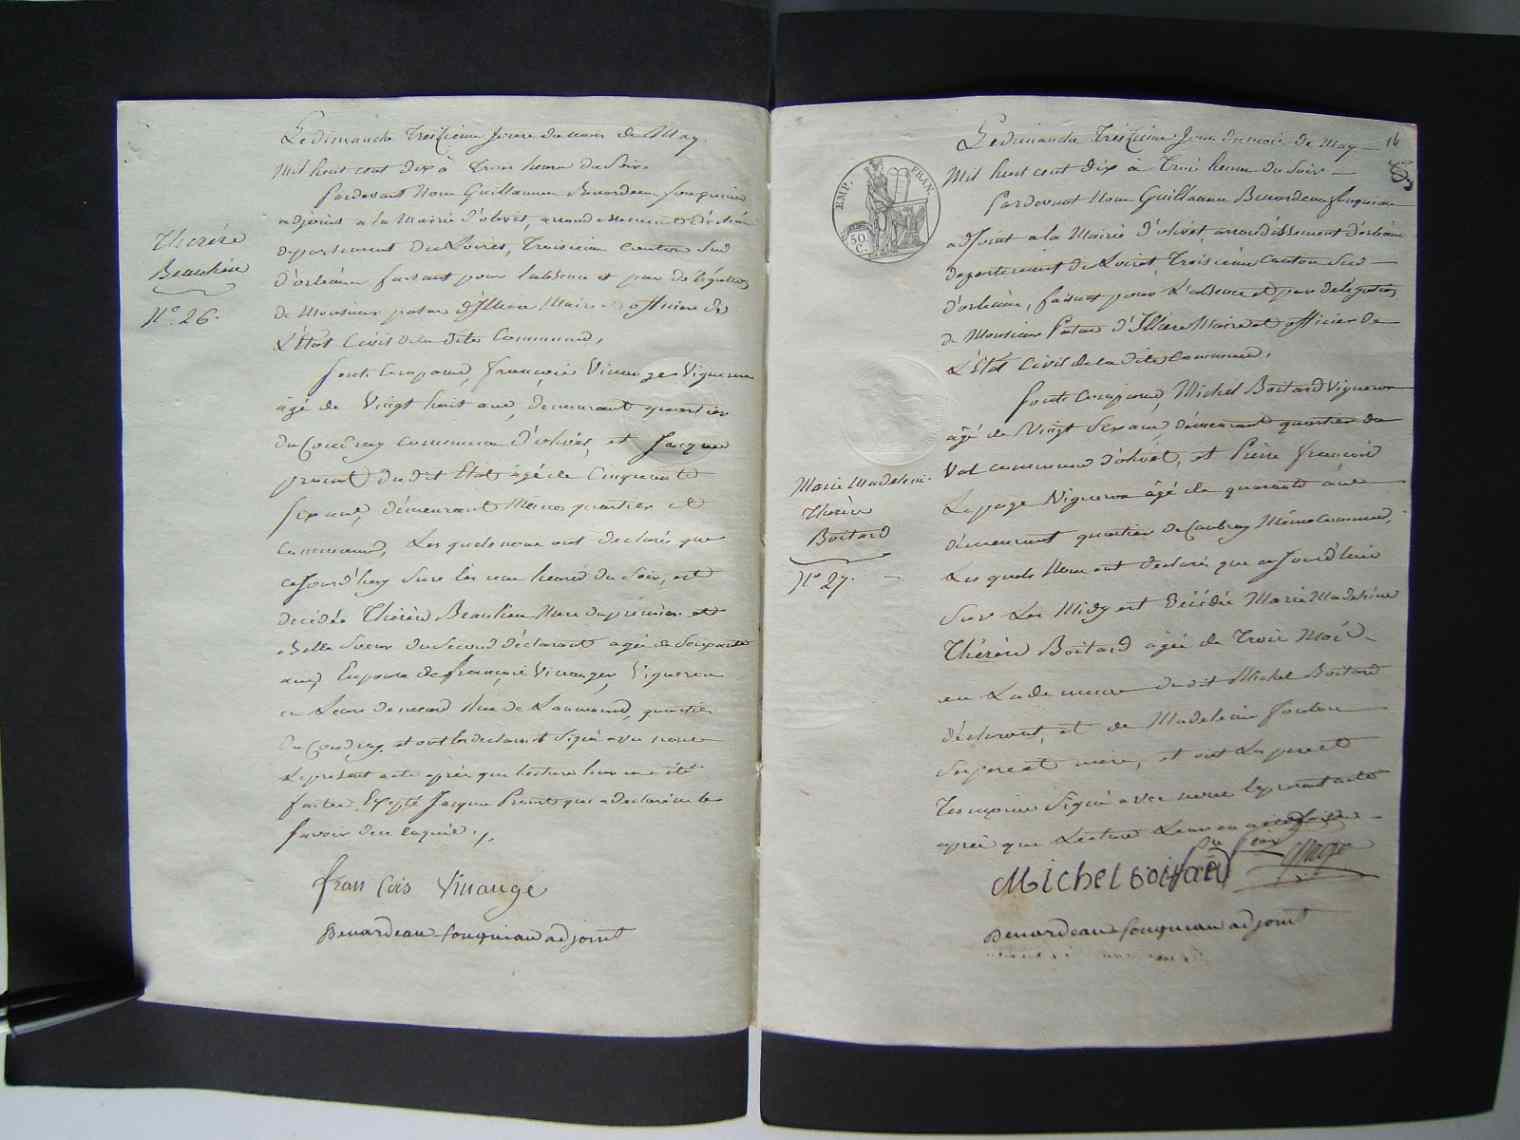 Le dimanche Treizieme Jour du mois de May
Mil huit cent dix à trois heures du Soir
Pardevant Nous Guillaume Benardeau fouqueau
adjoint a la Mairie d'olivet, arrondissement d'orléans
departement du Loiret, Troisieme Canton Sud
d'orléans faisant pour l'absence et par délégation
de Monsieur patas d'Illiers Maire et officier de
L'État Civil de la dite Commune,
Thérèse
Beaulieu
N.º 26.
sont Comparus, François Vinauger Vigneron
âgé de Vingt huit ans, demeurant quartier
du Coudray commune d'olivet, et Jacques
du dit Etat âgé de Cinquante
Six ans, demeurant Même quartier et
Commune, Les quels nous ont declarés que
cejourd'huy Sur les heures du Soir, est
décédée Thérèse Beaulieu Mere du premier et
Belle Soeur du Second déclarant agée de Soixante
ans, Epouse de François Vinauger, Vigneron
en Leurs demeure de Commune, quartier
du Coudray, et ont les declarant Signé avec nous
Le présent acte après que lecture leur en a été
faite, Excepté Jacques qui a declaré ne le
savoir de ce enquis./.
fran Cois Vinauge
Benardeau fouqueau adjoint
16
Le dimanche Treizieme Jour du mois de May
Mil huit cent dix à Trois heures du Soir
Pardevant Nous Guillaume Benardeau fouqueau
adjoint a la Mairie d'olivet, arrondissement d'orléans
departement du Loiret, Troisieme Canton Sud
d'orléans, faisant pour L'absence et par délégation
de Monsieur Patas d'Illiers Maire et officier de
L'État Civil de la dite Commune,
EMP. FRAN.
50
C.
sont Comparus, Michel Boitard Vigneron
âgé de Vingt Six ans, demeurant quartier du
Val commune d'olivet, et Pierre François
Lepage Vigneron âgé de quarante ans
demeurant quartier du Coudray Même Commune,
Marie Madeleine
Thérèse
Boitard
Nº 27.
Les quels Nous ont declaré que cejourd'huis
Sur Les Midy est Décédée Marie Madeleine
Thérèse Boitard agée de Trois Mois
en La demeure du dit Michel Boitard
déclarant, et de Madeleine
Ses pere et mere, et ont Les pere et
Temoins Signé avec nous le présent acte
après que Lecture Leur en a été faite
Michel boitard
Benardeau fouqueau adjoint